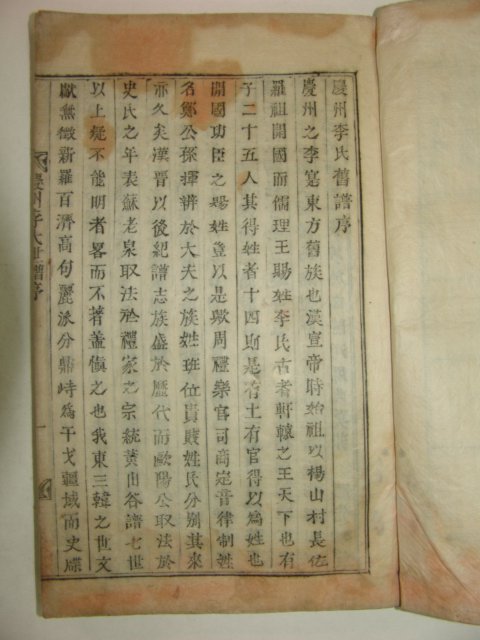 慶州李氏舊譜序
慶州之李寔東方舊族也漢宣帝時始祖以楊山村長佐
羅祖開國而儒理王賜姓李氏古者軒轅之王天下也有
子二十五人其得姓者十四則是有土有官得以為姓也
開國功臣之賜姓豈以是歟周禮樂官司商定音律制姓
名鄭公孫揮辨於大夫之族姓班位貴賤姓氏分別其來
亦久矣漢晉以後紀譜志族盛於歷代而歐陽公取法於
史氏之年表蘇老泉取法於禮家之宗統黃山谷譜七世
以上疑不能明者畧而不著蓋愼之也我東三韓之世文
獻無徵新羅百濟高句麗派分鼎峙為干戈疆域而史牒
慶州李氏世譜序
一